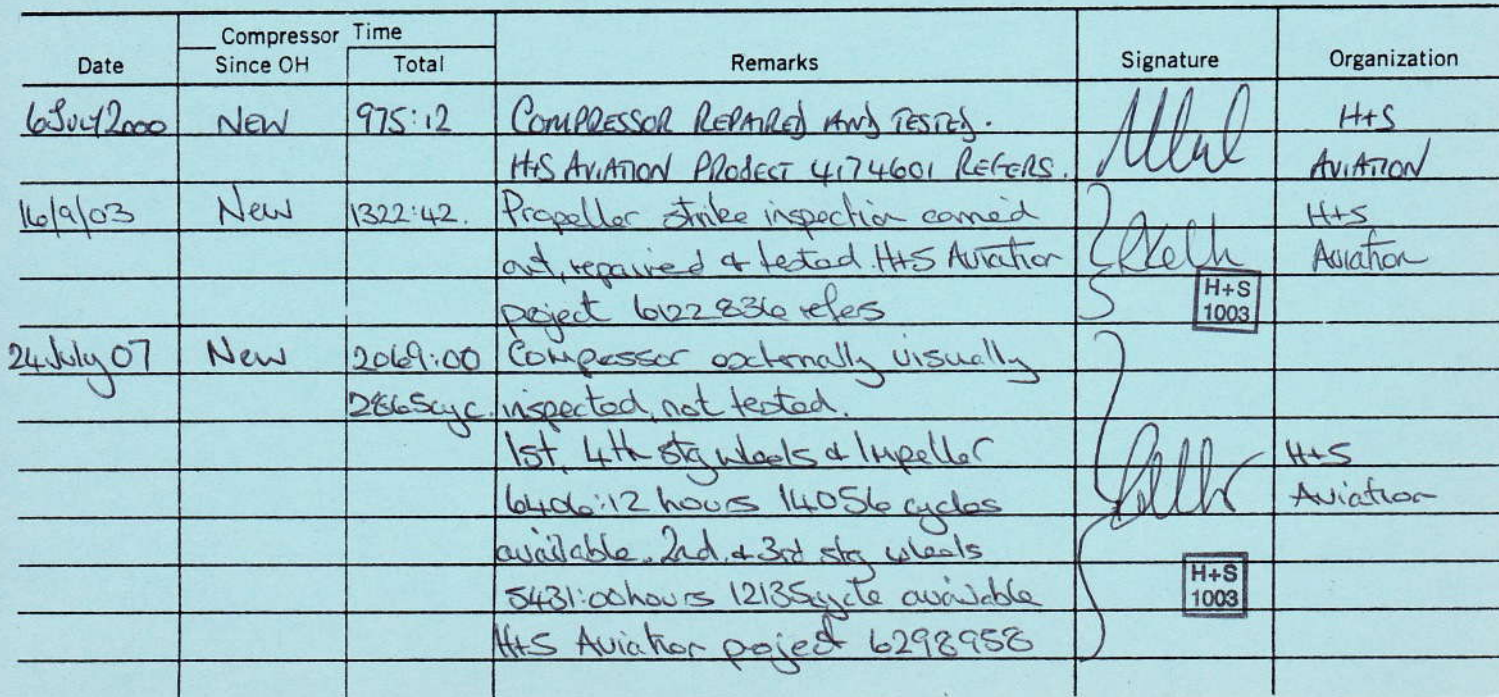 Compressor Time
Date Since OH Total Remarks Signature Organization
6 July 2000 New 975:12 COMPRESSOR REPAIRED AND TESTED. H+S
H+S AVIATION PROJECT 4174601 REFERS. AVIATION
16/9/03 New 1322:42. Propeller strike inspection carried H+S
out, repaired & tested. H+S Aviation Aviation
poject 6122836 refers H+S
1003
24 July 07 New 2069:00 Compressor externally visually
2865cyc. inspected, not tested.
1st, 4th stg wheels & Impeller H+S
6406:12 hours 14056 cycles Aviation
available. 2nd. & 3rd stg wheels
5431:00 hours 12135 cycle available H+S
1003
H+S Aviation poject 6298958